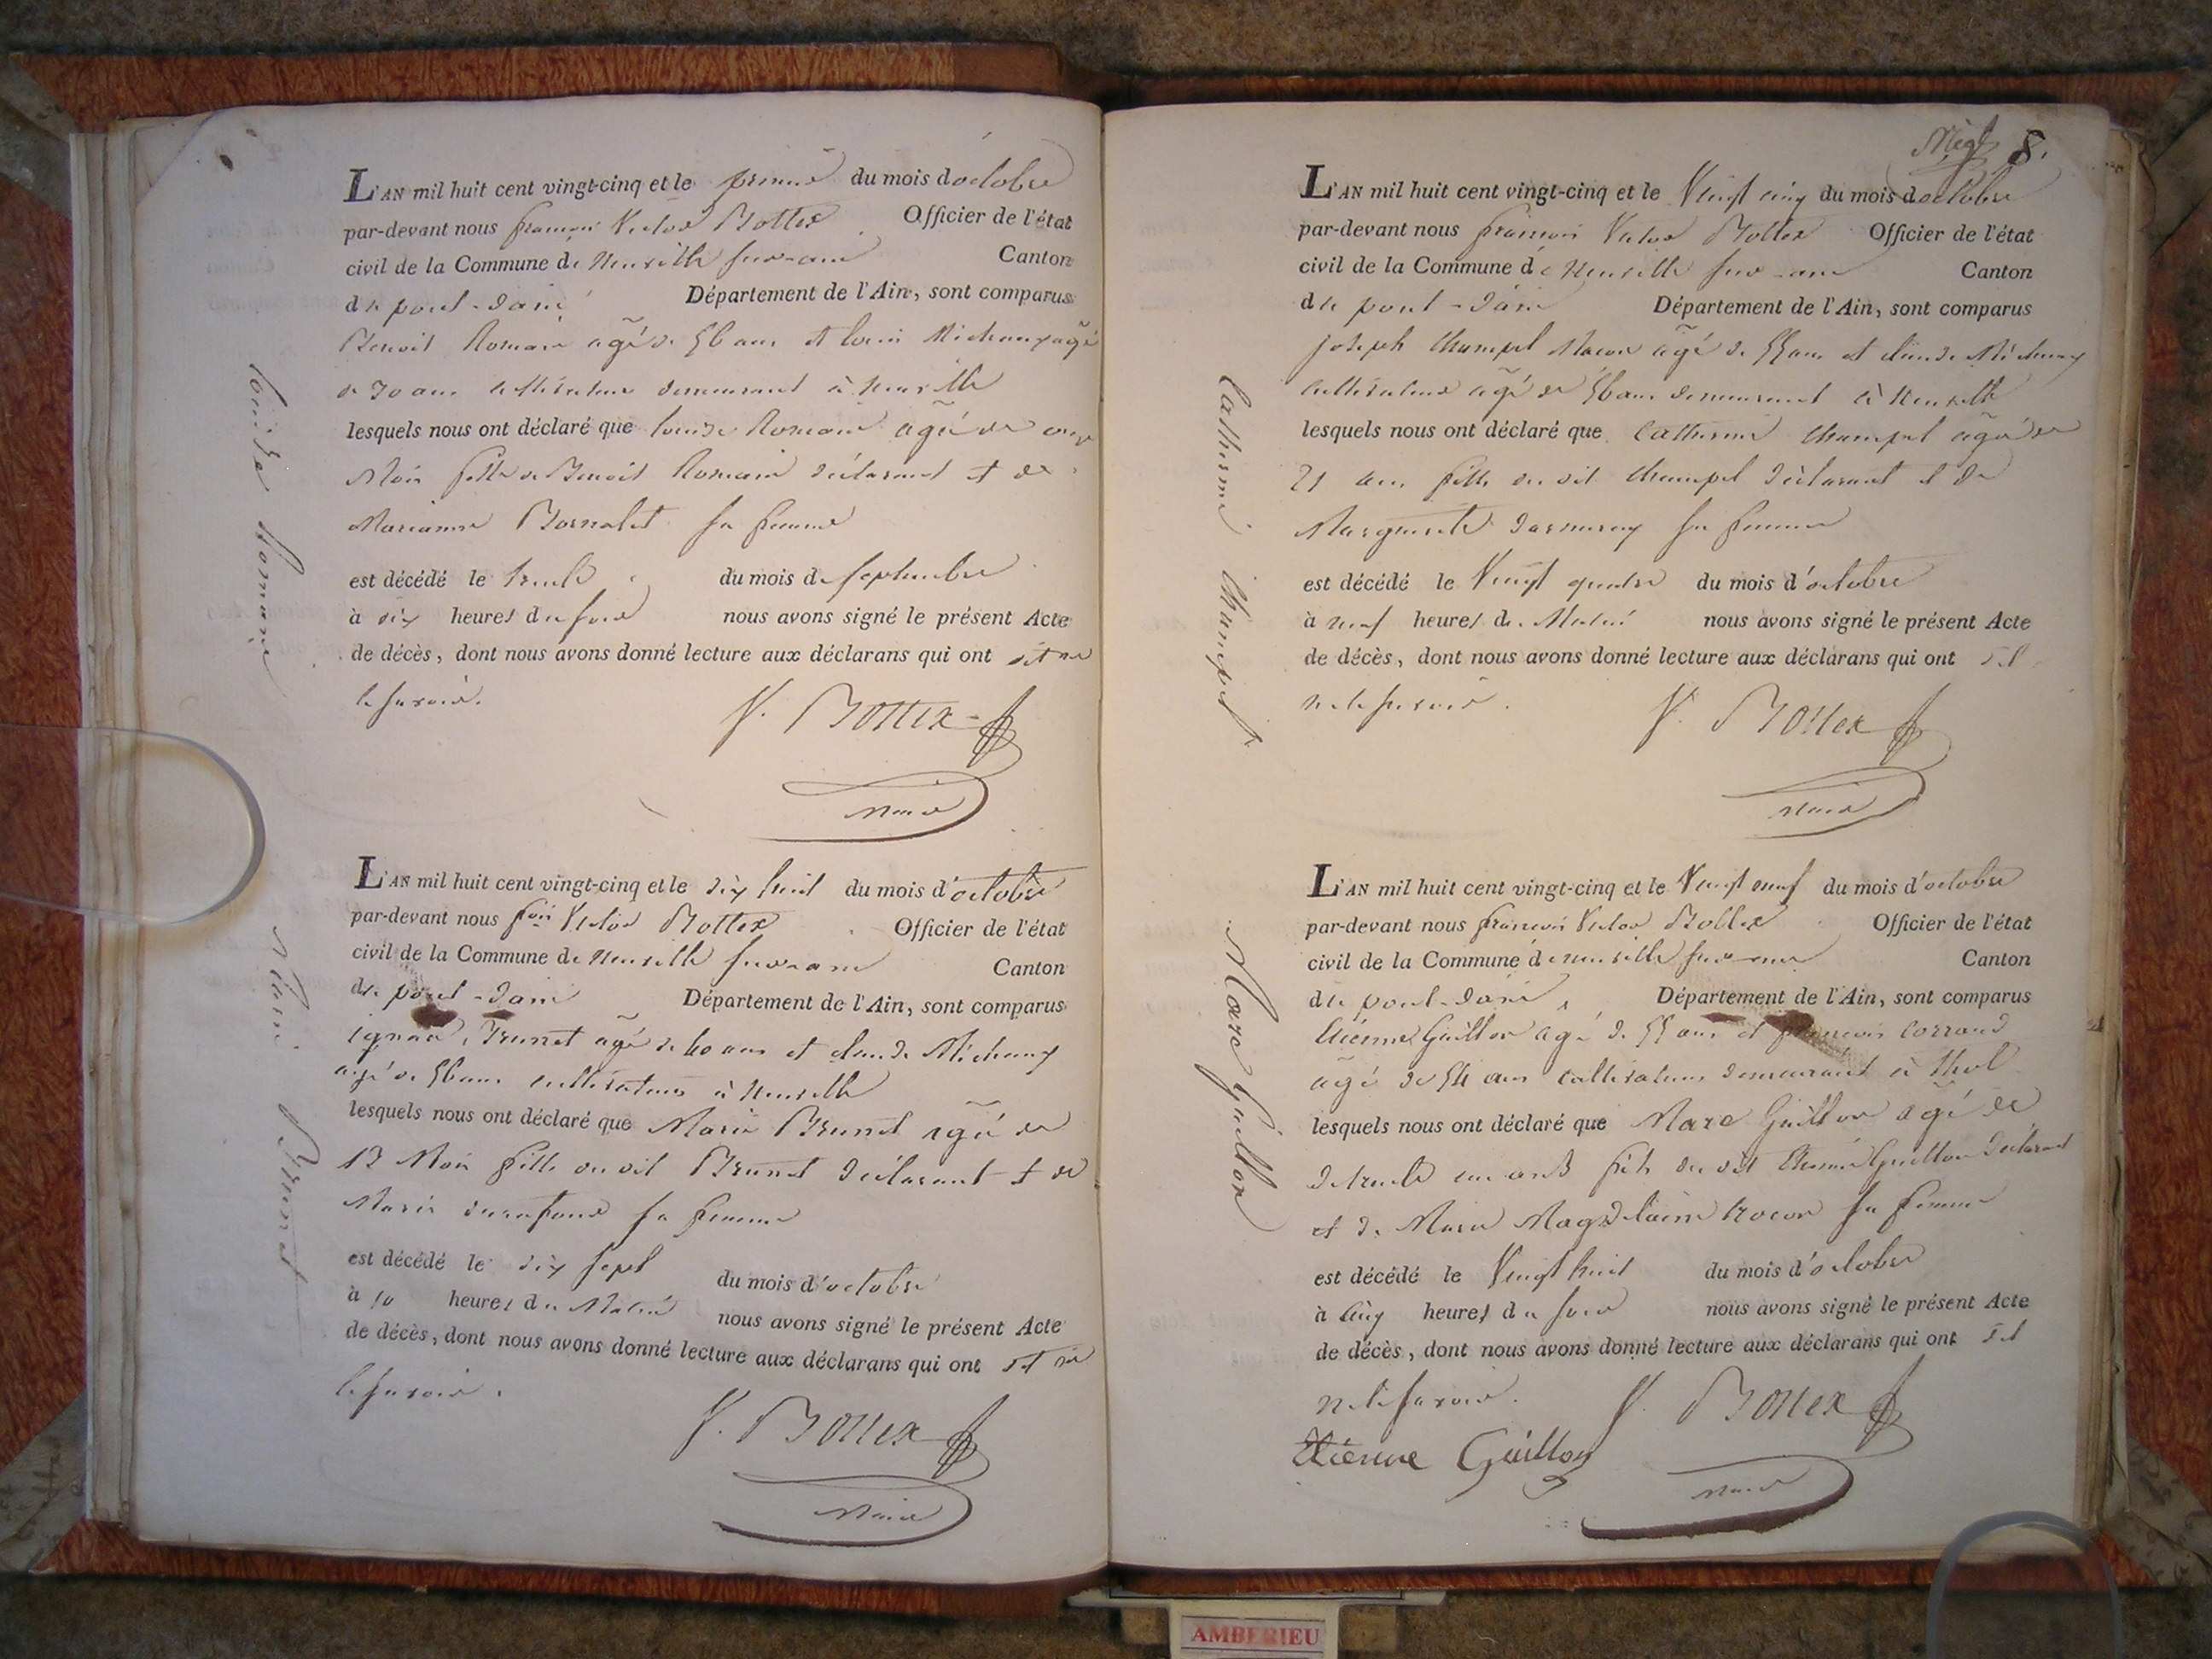 Louise Romain
L'AN mil huit cent vingt-cinq et le premier du mois d'octobre
par-devant nous françois Victor Bottex Officier de l'état
civil de la Commune de Neuville sur-ain Canton
de pont-dain Département de l'Ain, sont comparus
Benoit Romain agé de 56 ans et louis Michaux agé
de 30 ans cultivateurs demeurant à Neuville
lesquels nous ont déclaré que louise Romain agée de onze
Mois fille de Benoit Romain déclarant et de
Marianne sa femme
est décédé le trente du mois de septembre
à six heures du soir nous avons signé le présent Acte
de décès, dont nous avons donné lecture aux déclarans qui ont dit ne
le savoir.
V. Bottex
Maire
Marie Brunet
L'AN mil huit cent vingt-cinq et le dix huit du mois d'octobre
par-devant nous fçois Victor Bottex Officier de l'état
civil de la Commune de Neuville sur-ain Canton
de pont-dain Département de l'Ain, sont comparus
ignace Brunet agé de 40 ans et claude Michaux
agé de 56 ans cultivateurs à Neuville
lesquels nous ont déclaré que Marie Brunet agée de
13 Mois fille du dit Brunet déclarant et de
Marie sa femme
est décédé le dix sept du mois d'octobre
à 10 heures du Matin nous avons signé le présent Acte
de décès, dont nous avons donné lecture aux déclarans qui ont dit ne
le savoir.
V. Bottex
Maire
8.
Catherine Champel
L'AN mil huit cent vingt-cinq et le Vingt cinq du mois d'octobre
par-devant nous françois Victor Bottex Officier de l'état
civil de la Commune de Neuville sur-ain Canton
de pont-dain Département de l'Ain, sont comparus
joseph Champel Macon agé de 55 ans et claude Michaux
cultivateur agé de 56 ans demeurant à Neuville
lesquels nous ont déclaré que Catherine Champel agée de
21 ans fille du dit Champel déclarant et de
Marguerite sa femme
est décédé le Vingt quatre du mois d'octobre
à neuf heures du Matin nous avons signé le présent Acte
de décès, dont nous avons donné lecture aux déclarans qui ont dit
ne le savoir.
V. Bottex
Maire
Marc Guillon
L'AN mil huit cent vingt-cinq et le Vingt neuf du mois d'octobre
par-devant nous françois Victor Bottex Officier de l'état
civil de la Commune de neuville sur-ain Canton
de pont-dain Département de l'Ain, sont comparus
Etienne Guillon agé de 55 ans et francois Corrand
agé de 54 ans cultivateurs demeurant à thol
lesquels nous ont déclaré que Marc Guillon agé de
de trente un ans fils du dit Etienne Guillon déclarant
et de Marie Magdelaine sa femme
est décédé le Vingt huit du mois d'octobre
à cinq heures du soir nous avons signé le présent Acte
de décès, dont nous avons donné lecture aux déclarans qui ont dit
ne le savoir.
V. Bottex
Etienne Guillon
Maire
AMBERIEU